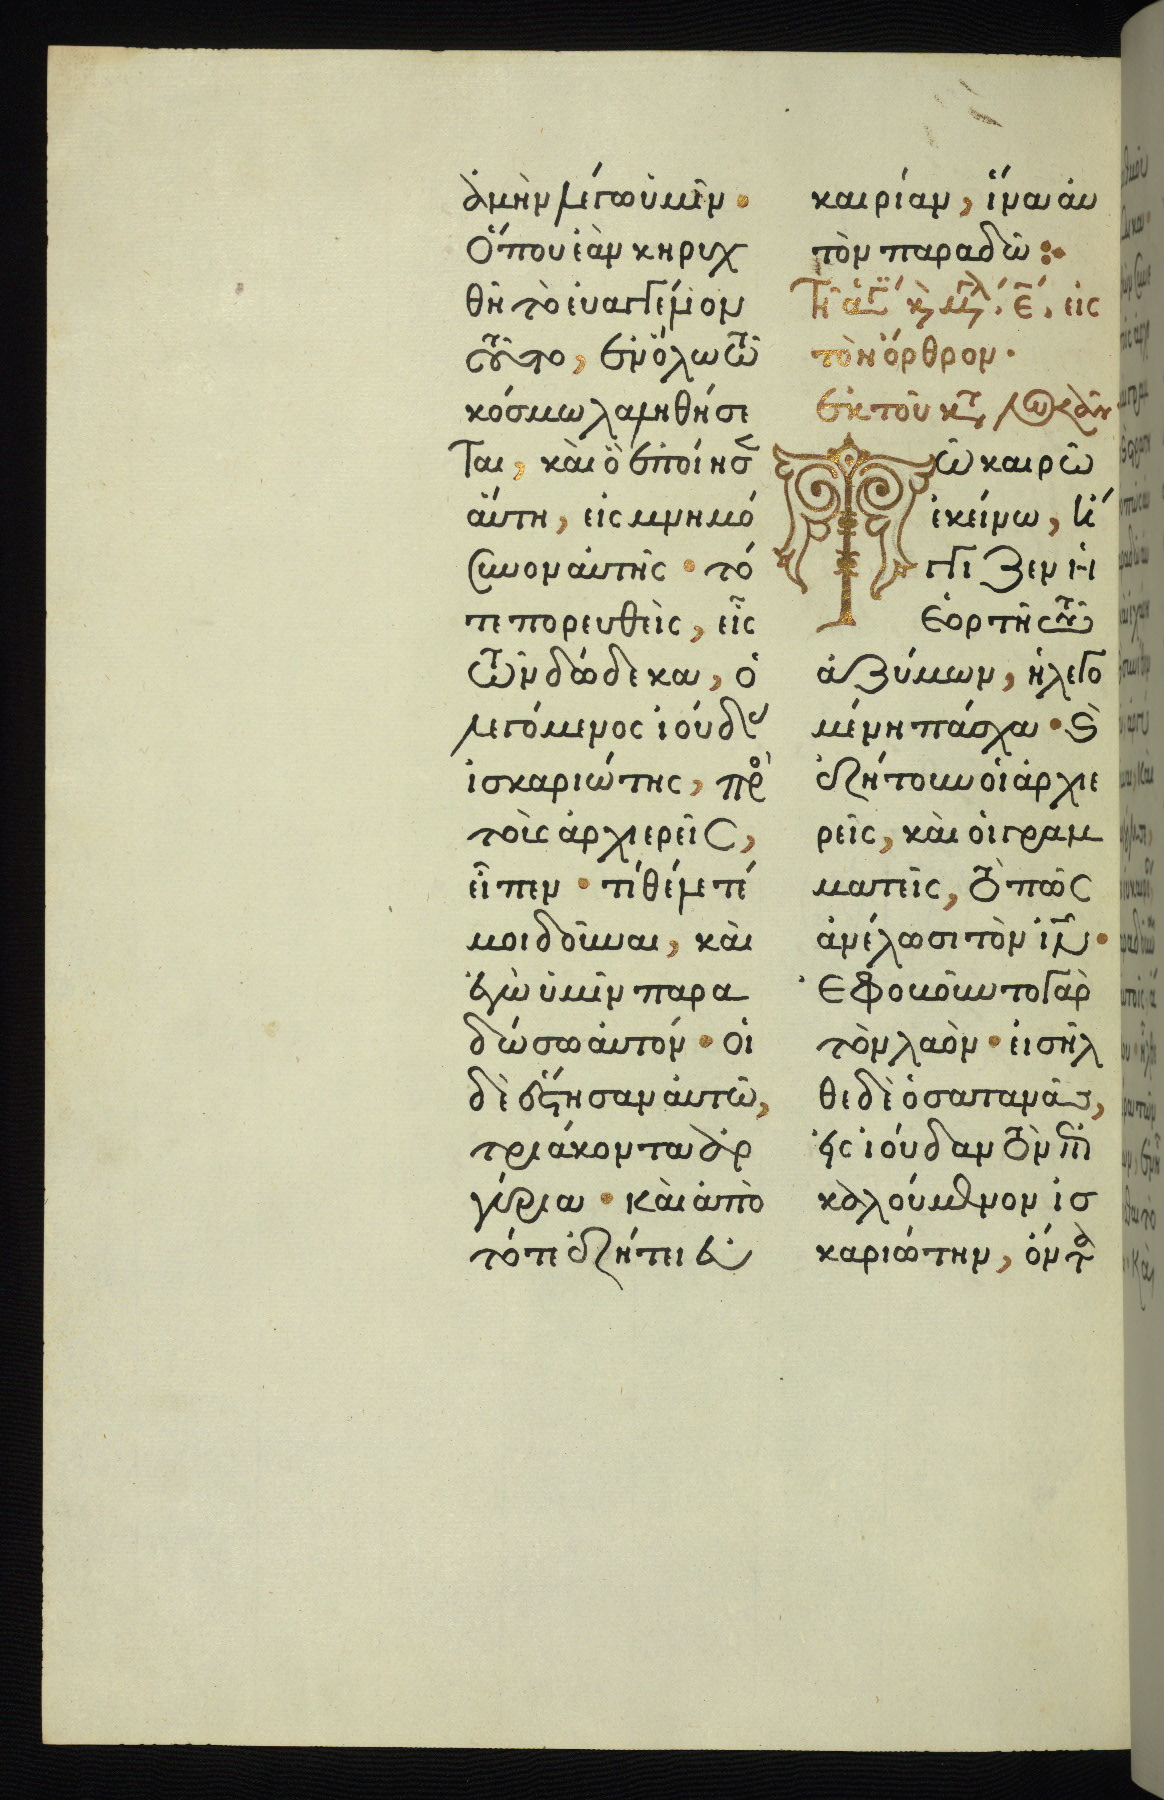 ἀμὴν λέγω ὑμῖν.
Ὅπου ἐὰν κηρυχ
θῇ τὸ εὐαγγέλιον
τοῦτο, ἐν ὅλω τῶ
κόσμω λαληθήσε
ται, καὶ ὃ ἐποίησεν
ἅυτη, εἰς μνημό
συνον ἀυτῆς. τό
τε πορευθεὶς, εἷς
τῶν δώδεκα, ὁ
λεγόμενος ἰούδας
ἰσκαριώτης, πρὸς
τοὺς ἀρχιερεῖς,
εἶπεν. τί θέλετέ
μοι δοῦναι, καὶ
ἐγὼ ὑμῖν παρα
δώσω ἀυτόν. οἱ
δὲ ἔστησαν ἀυτῶ,
τριάκοντα ἀρ
γύρια. καὶ ἀπὸ
τότε ἐζήτει εὐ
καιρίαν, ἵνα ἀυ
τὸν παραδῶ:
Τῆ ἁγ κ μγλ ε, εἰς
τὸν όρθρον.
Ἐκ τοῦ κτ λουκᾶν
Τῶ καιρῶ
ἐκείνω, ἤ
γγιζεν ἡ
ἑορτὴ τῶν
ἀζύμων, ἡ λεγο
μένη πάσχα. καὶ
ἐζήτουν οἱ ἀρχιε
ρεῖς, καὶ οἱ γραμ
ματεῖς, τὸ πῶς
ἀνέλωσι τὸν ιν.
Ἐφοβοῦντο γὰρ
τὸν λαόν. εἰσῆλ
θε δὲ ὁ σατανᾶς,
εἰς ἰούδαν τὸν ἐπι
καλούμενον ἰσ
καριώτην, ὄντα